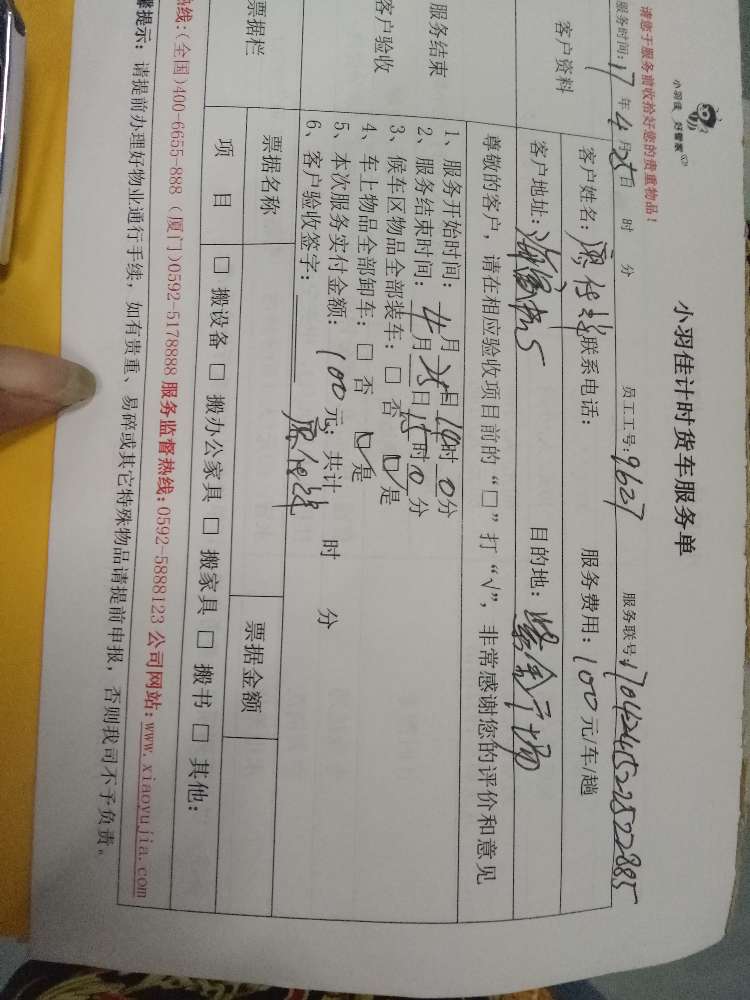 小羽佳 好管家
小羽佳计时货车服务单
请您于服务前收拾好您的贵重物品！
服务时间：17年4月25日 时 分 员工工号：9627 服务联号：
客户资料
客户姓名： 联系电话： 服务费用：100元/车/趟
客户地址： 目的地：
尊敬的客户，请在相应验收项目前的“□”打“√”，非常感谢您的评价和意见
服务结束
客户验收
1、服务开始时间：4月25日14时0分
2、服务结束时间：4月25日15时0分
3、候车区物品全部装车：□ 否 ☑ 是
4、车上物品全部卸车：□ 否 ☑ 是
5、本次服务实付金额：100元；共计 时 分
6、客户验收签字：
票据栏
票据名称 票据金额
项 目 □ 搬设备 □ 搬办公家具 □ 搬家具 □ 搬书 □ 其他：
热线：(全国)400-6655-888 (厦门)0592-5178888 服务监督热线：0592-5888123 公司网站：www.xiaoyujia.com
提示：请提前办理好物业通行手续，如有贵重、易碎或其它特殊物品请提前申报，否则我司不予负责。